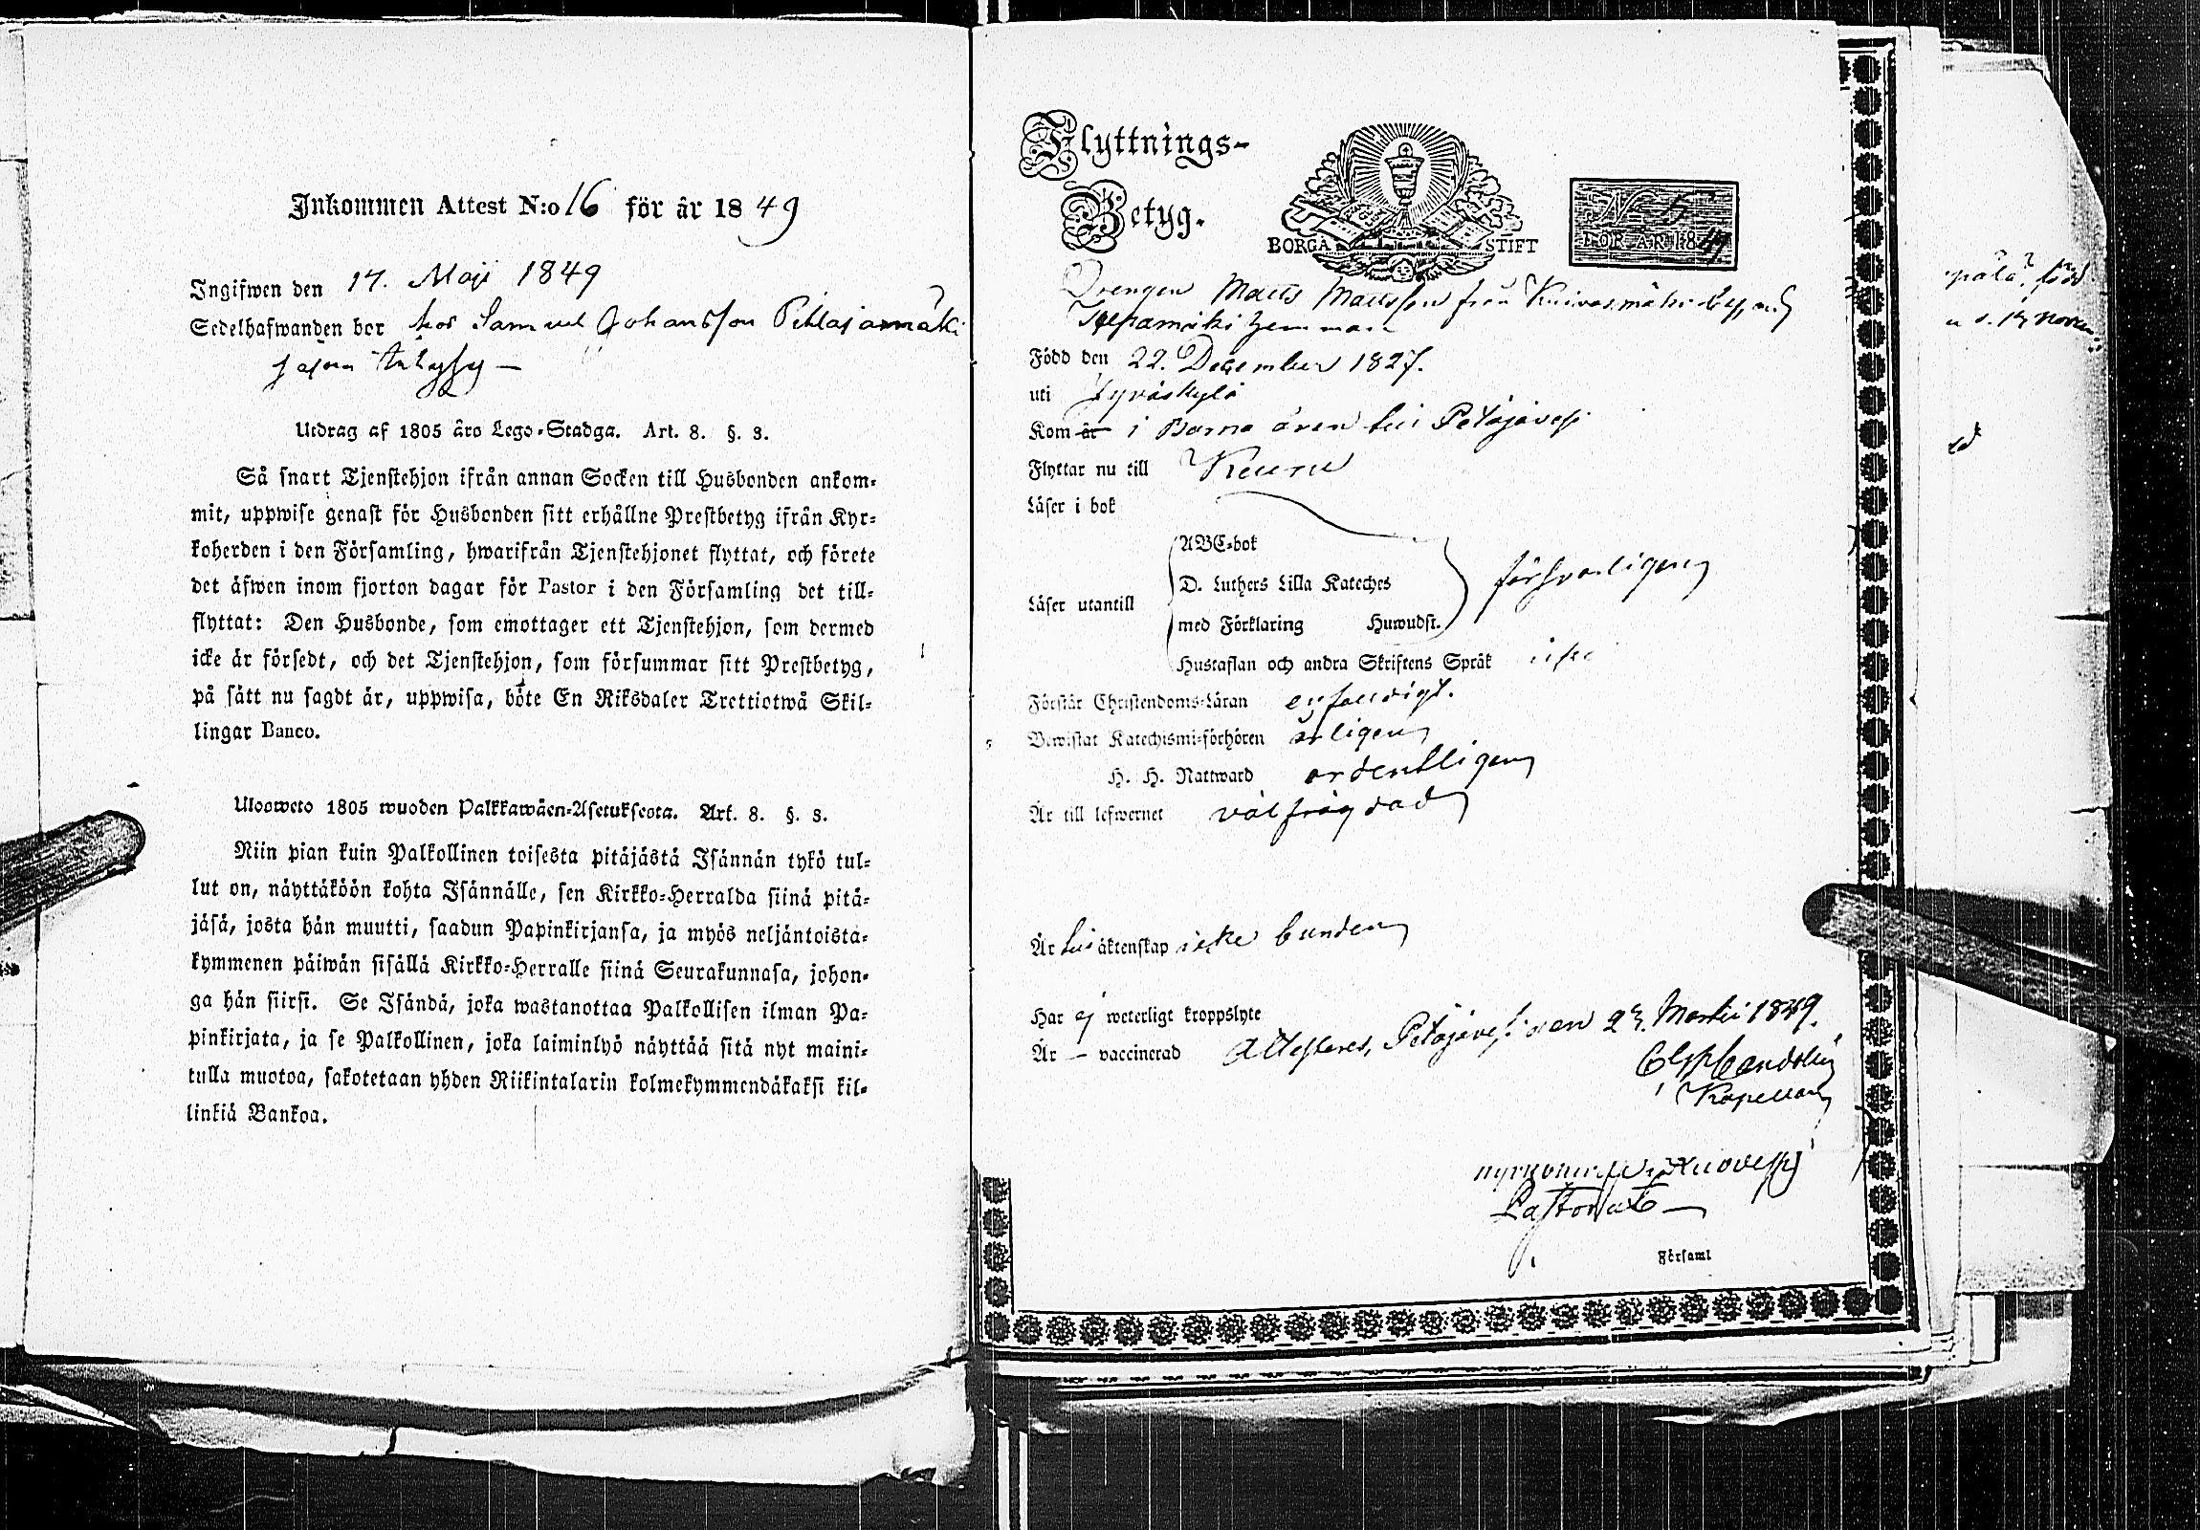 Inkommen Attest N:o 16 för år 1849
Ingifwen den 17. Maji 1849
Sedelhafwanden bor hos Samuel Johansson Pihlajamäki
Utdrag af 1805 års Lego-Stadga. Art. 8. §. 3.
Så snart Tjenstehjon ifrån annan Socken till Husbonden ankom-
mit, uppwise genast för Husbonden sitt erhållne Prestbetyg ifrån Kyr-
koherden i den Församling, hwarifrån Tjenstehjonet flyttat, och förete
det äfwen inom fjorton dagar för Pastor i den Församling det till-
flyttat: Den Husbonde, som emottager ett Tjenstehjon, som dermed
icke är försedt, och det Tjenstehjon, som försummar sitt Prestbetyg,
på sätt nu sagdt är, uppwisa, böte En Riksdaler Trettiotwå Skil-
lingar Banco.
Uloosweto 1805 wuoden Palkkawäen-Asetuksesta. Art. 8. §. 3.
Niin pian kuin Palkollinen toisesta pitäjästä Isännän tykö tul-
lut on, näyttäköön kohta Isännälle, sen Kirkko-Herralda siinä pitä-
jäsä, josta hän muutti, saadun Papinkirjansa, ja myös neljäntoista-
kymmenen päiwän sisällä Kirkko-Herralle siinä Seurakunnasa, johon-
ga hän siirsi. Se Isändä, joka wastanottaa Palkollisen ilman Pa-
pinkirjata, ja se Palkollinen, joka laiminlyö näyttää sitä nyt maini-
tulla muotoa, sakotetaan yhden Riikintalarin kolmekymmendäkaksi kil-
linkiä Bankoa.
Flyttnings-
Betyg.
BORGÅ STIFT
N:o 5
FÖR ÅR 1849
Drengen Matts Mattsson från Kuivasmäki by och
Kepamäki hemman
Född den 22. December 1827.
uti Jyväskylä
Kom år i Barna åren till Petäjävesi
Flyttar nu till Keuru
Läser i bok
ABC-bok
D. Luthers Lilla Kateches
Läser utantill försvarligen
med Förklaring Huwudst.
Hustaflan och andra Skriftens Språk icke
Förstår Christendoms-Läran enfaldigt.
Bewistat Katechismi-förhören årligen
H. H. Nattward ordentligen
Är till lefwernet välfrägdad
Är till äktenskap icke bunden
Har ej weterligt kroppslyte
Är — vaccinerad Attesteras, Petäjävesi den 23. Martii 1849.
Kapellan
Pastorat
Församl